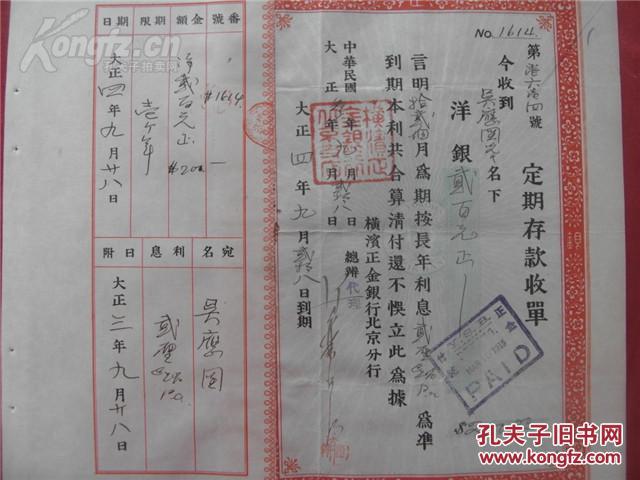 No. 1614.
第壹六壹四號
定期存款收單
今收到
吳應図 名下
洋銀貳百元正
言明拾貳個月爲期按長年利息貳厘 爲準
到期本利共合算清付還不悞立此爲據
橫濱正金銀行北京分行
總辦代理
中華民國 年九月貳拾八日
大正 年 月 日
大正四年九月貳拾八日到期
PAID
番號
#1614.
金額
洋貳百元正
$200—
期限
壹ケ年
期日
大正四年九月廿八日
宛名
吳應図
利息
貳厘
2% P.a.
日附
大正三年九月廿八日
孔夫子旧书网
www.kongfz.com
孔夫子旧书网